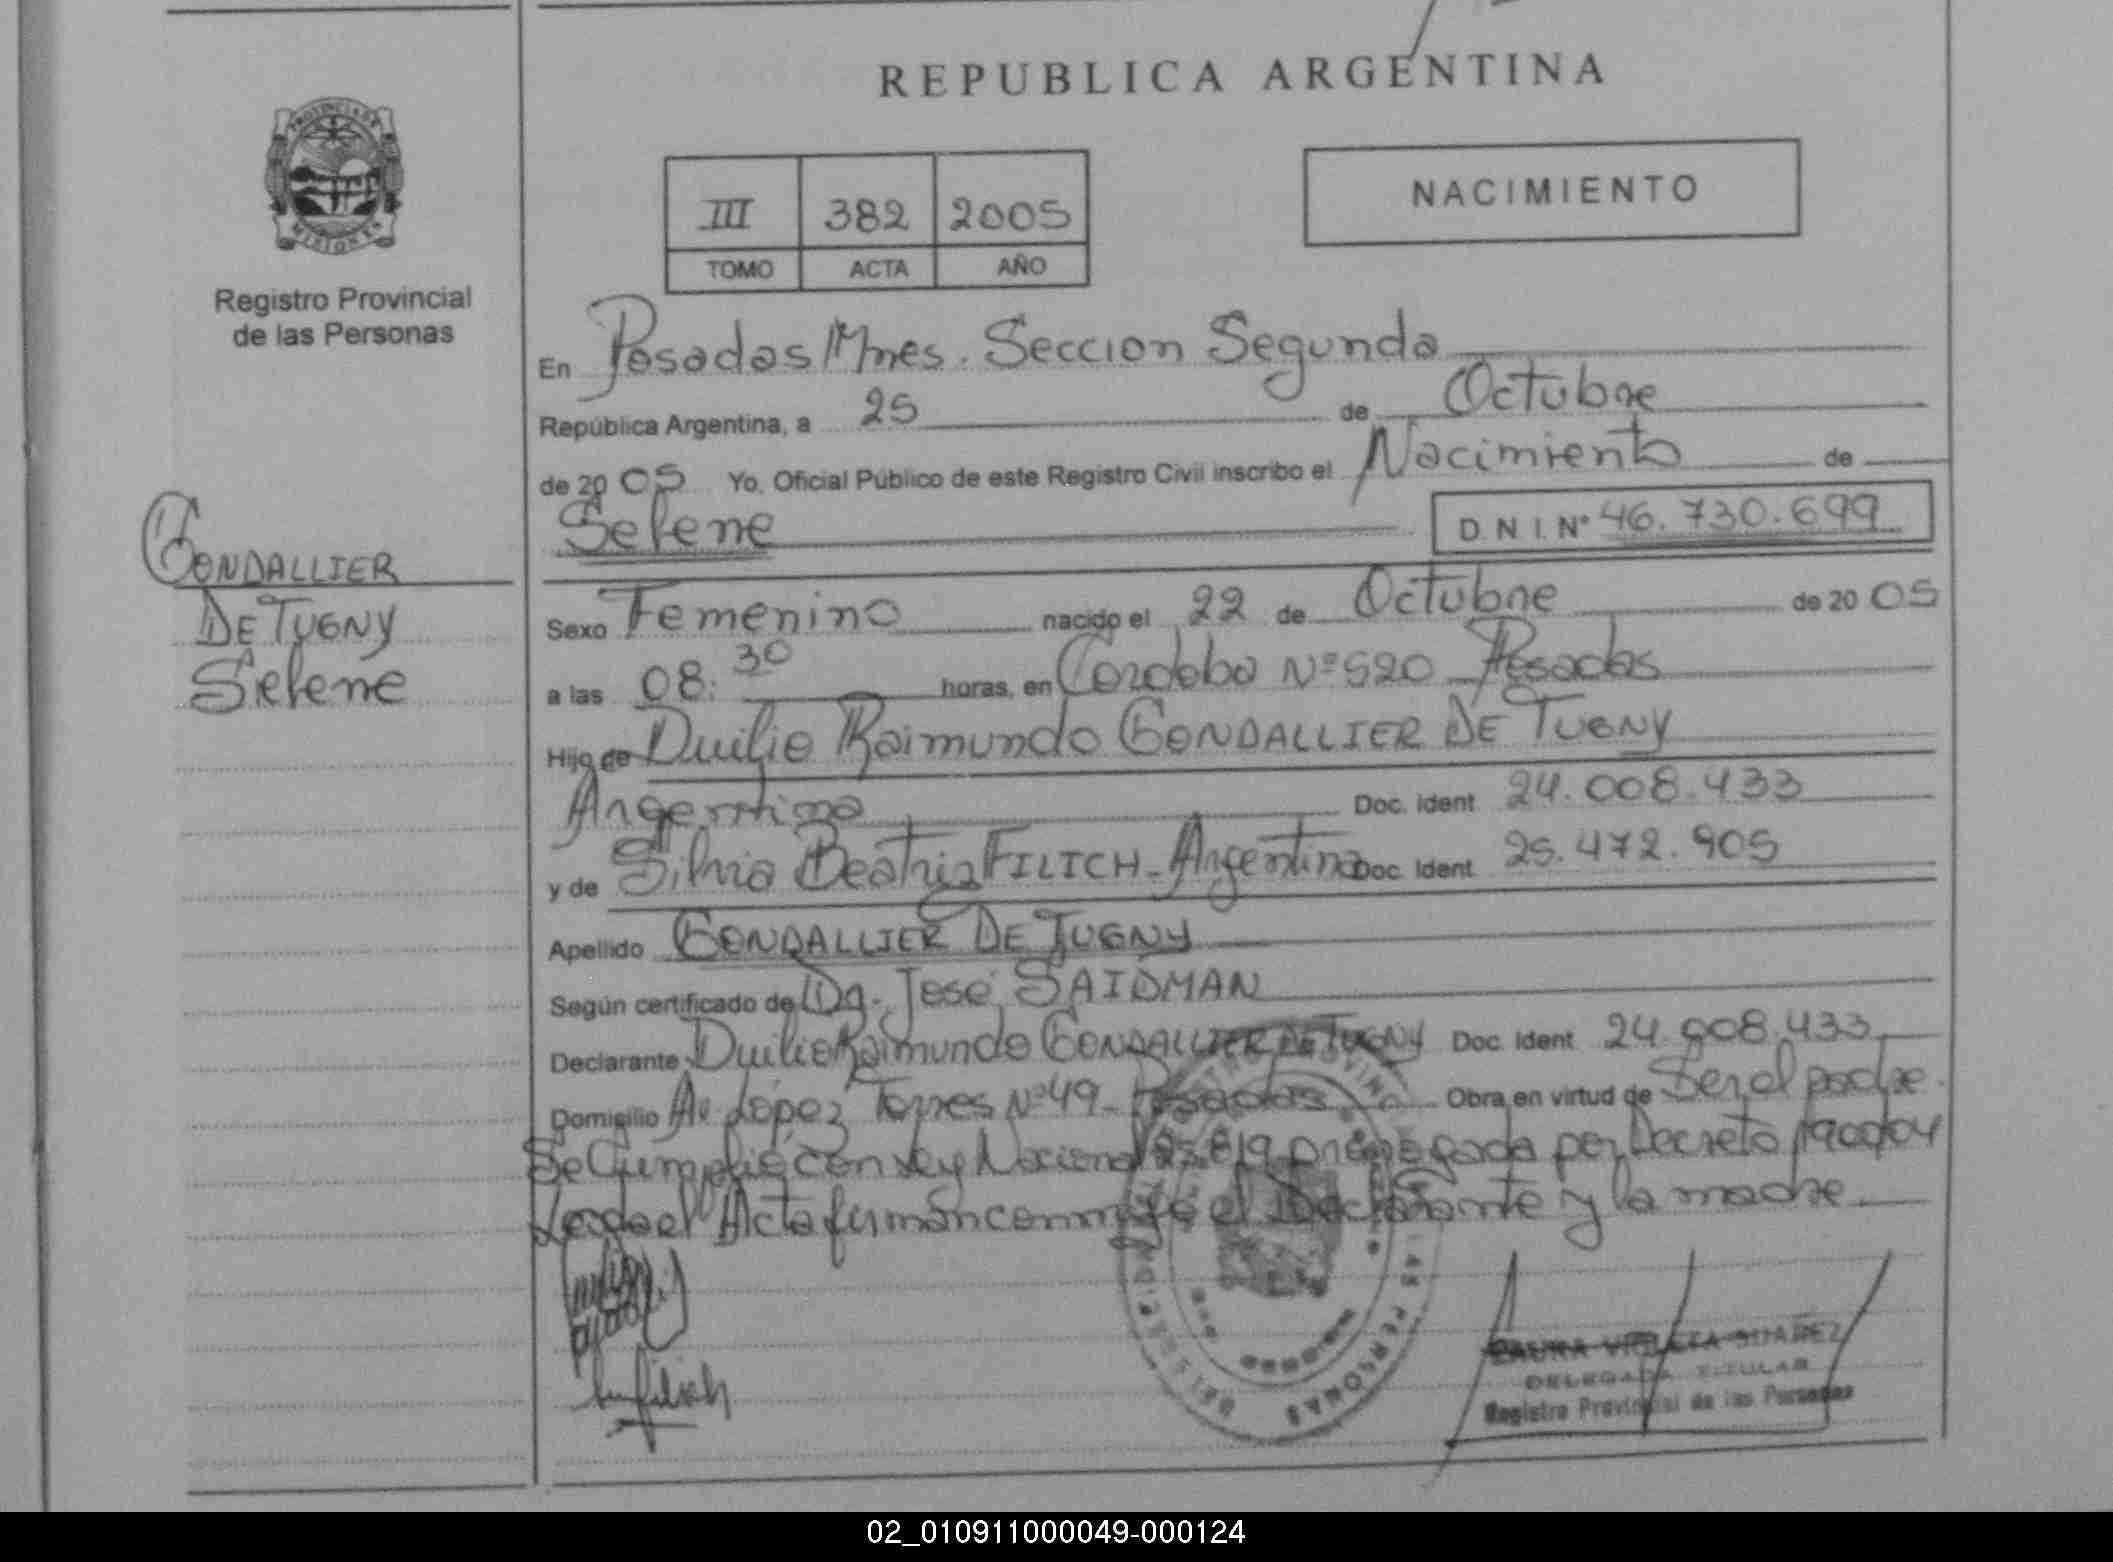 REPUBLICA ARGENTINA
PROVINCIA DE
MISIONES
Registro Provincial
de las Personas
III 382 2005
TOMO ACTA AÑO
NACIMIENTO
En Posadas Mnes. Seccion Segunda
República Argentina, a 25 de Octubre
de 2005 Yo, Oficial Público de este Registro Civil inscribo el Nacimiento de
Selene D.N.I. Nº 46.730.699
CONDALLIER
DE TUGNY
Selene
Sexo Femenino nacido el 22 de Octubre de 2005
a las 08:30 horas, en Cordoba Nº 520 Posadas
Hijo de Duilio Raimundo CONDALLIER DE TUGNY
Argentino Doc. Ident 24.008.433
y de Silvia Beatriz FILICH - Argentina Doc. Ident 25.472.905
Apellido CONDALLIER DE TUGNY
Según certificado de Dr. José SAIDMAN
Declarante Duilio Raimundo CONDALLIER DE TUGNY Doc. Ident 24.008.433
Domicilio Av. López Torres Nº 49 - Posadas Obra en virtud de Ser el padre
Se Cumplió con Ley Nacional 25.819 prorrogada por Decreto 1900/04
Leida el Acta firman conmigo el Declarante y la madre
Filich
LAURA VIOLETA SUAREZ
DELEGADA TITULAR
Registro Provincial de las Personas
02_010911000049-000124